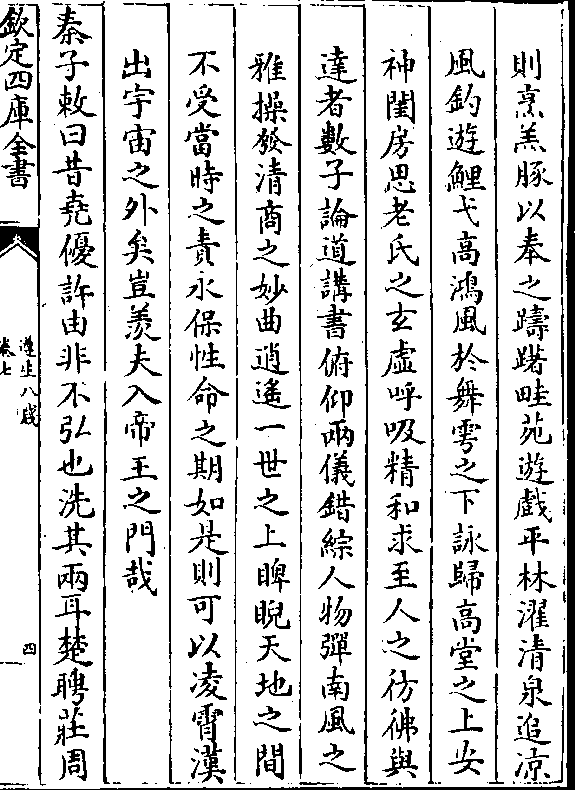 則烹羔豚以奉之躊躇畦苑遊戲平林濯清泉追凉
風釣遊鯉弋高鴻風於舞雩之下詠歸高堂之上安
神閨房思老氏之玄虛呼吸精和求至人之彷彿與
達者數子論道講書俯仰兩儀錯綜人物彈南風之
雅操發清商之妙曲逍遙一世之上睥睨天地之間
不受當時之責永保性命之期如是則可以凌霄漢
出宇宙之外矣豈羨夫入帝王之門哉
秦子敕曰昔堯優許由非不弘也洗其兩耳楚聘莊周
欽定四庫全書
遵生八牋
卷七
四